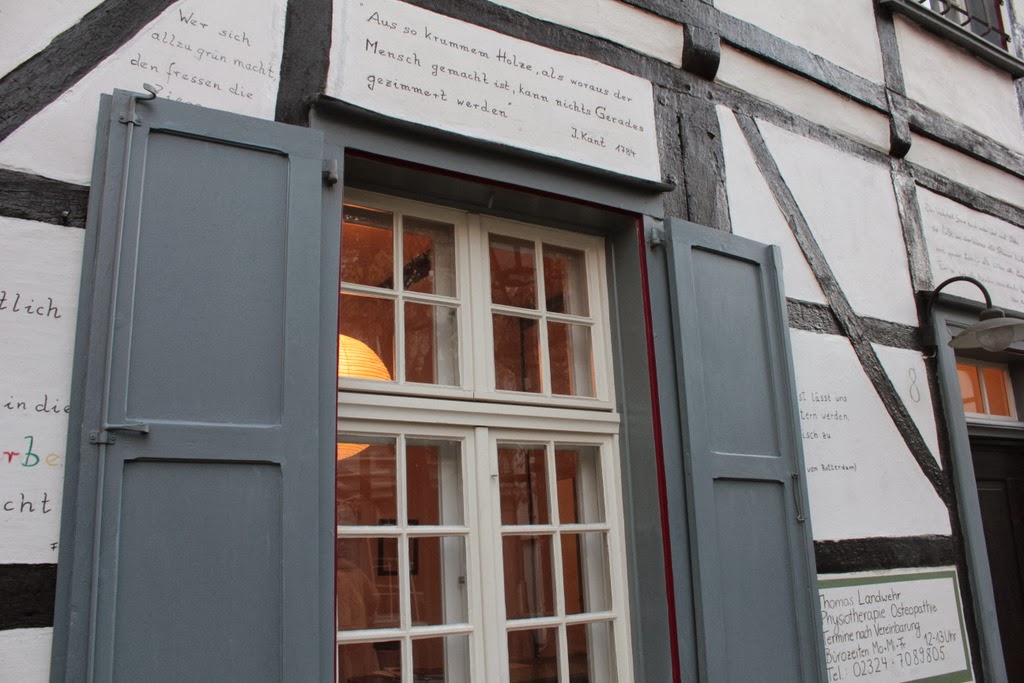 Wer sich
allzu grün macht,
den fressen die
Ziegen
"Aus so krummem Holze, als woraus der
Mensch gemacht ist, kann nichts Gerades
gezimmert werden"
J. Kant 1784
tlich
in die
rbe
cht
8
st lässt uns
tern werden.
isch zu
von Rotterdam)
Thomas Landwehr
Physiotherapie Osteopathie
Termine nach Vereinbarung
Bürozeiten Mo-Mi-Fr 12-13 Uhr
Tel.: 02324-7089805